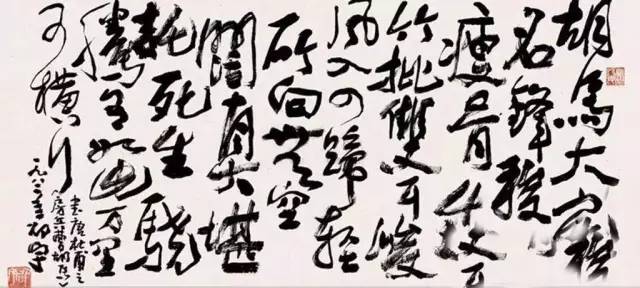 胡馬大宛
名鋒稜
瘦骨成
竹批雙耳峻
風入四蹄輕
所向無空
闊真堪
託死生驍
騰有如此万里
可橫行
書唐杜甫之
房兵曹胡馬
一九八